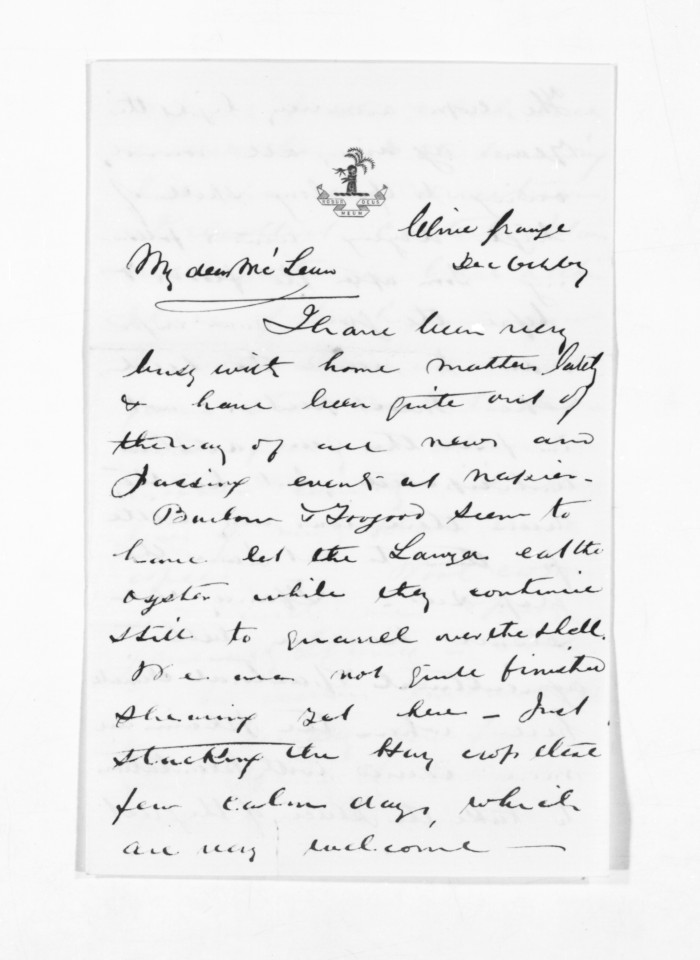 Clive Grange
Dec 6th 67
My dear McLean
I have been very
busy with home matters lately
& have been quite out of
the way of all news and
passing events at Napier -
Burton & Toogood seem to
have let the Lawyers eat the
oyster while they continue
still to quarrel over the shell.
We are not quite finished
shearing yet here - Just
stacking the Hay crop these
few calm days, which
are very welcome -